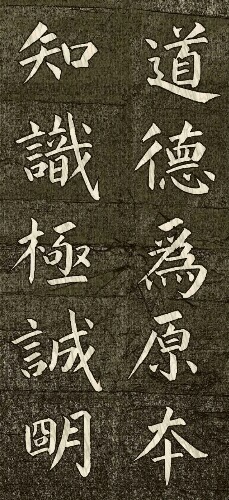 道德爲原本
知識極誠明